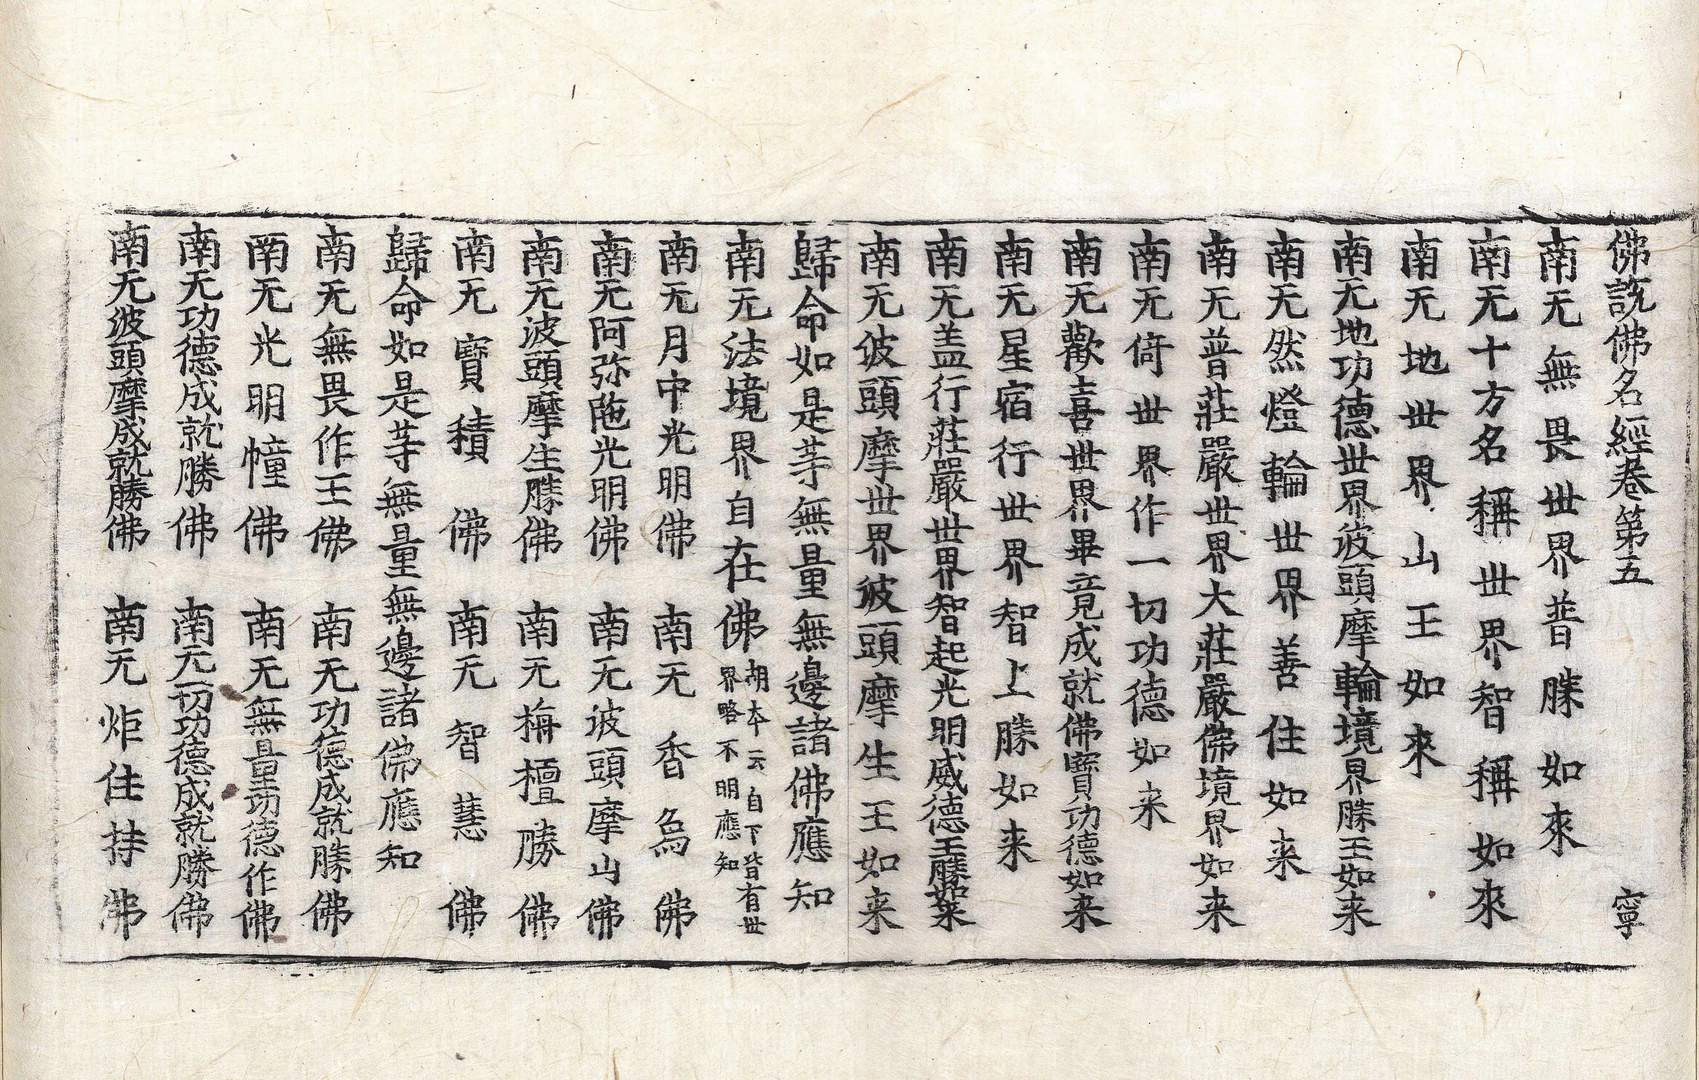 佛說佛名經卷第五 寧
南无無畏世界普勝如來
南无十方名稱世界智稱如來
南无地世界山王如來
南无地功德世界波頭摩輪境界勝王如来
南无然燈輪世界善住如来
南无普莊嚴世界大莊嚴佛境界如来
南无倚世界作一切功德如来
南无歡喜世界畢竟成就佛寶功德如来
南无星宿行世界智上勝如来
南无盖行莊嚴世界智起光明威德王勝如来
南无波頭摩世界波頭摩生王如来
歸命如是等無量無邊諸佛應知
南无法境界自在佛 胡本云自下皆有世界略不明應知
南无月中光明佛 南无香為佛
南无阿弥陁光明佛 南无波頭摩山佛
南无波頭摩生勝佛 南无栴檀勝佛
南无寶積佛 南无智慧佛
歸命如是等無量無邊諸佛應知
南无無畏作王佛 南无功德成就勝佛
南无光明幢佛 南无無量功德作佛
南无功德成就勝佛 南无一切功德成就勝佛
南无波頭摩成就勝佛 南无炬住持佛